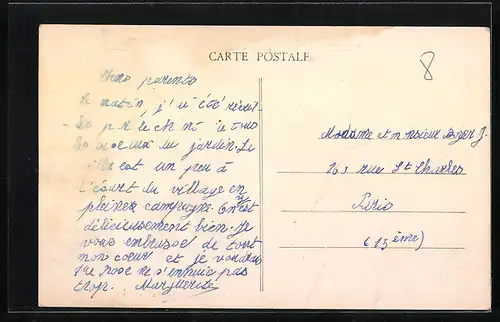 CARTE POSTALE
8
Chers parents
Ce matin, j'ai été
le ch tous
les oiseaux du jardin. La
villa est un peu à
l'écart du village en
pleine campagne. On est
délicieusement bien. Je
vous embrasse de tout
mon coeur et je voudrais
que ne s'ennuie pas
trop. Marguerite
Madame et monsieur J.
163 rue St Charles
Paris
(15ème)